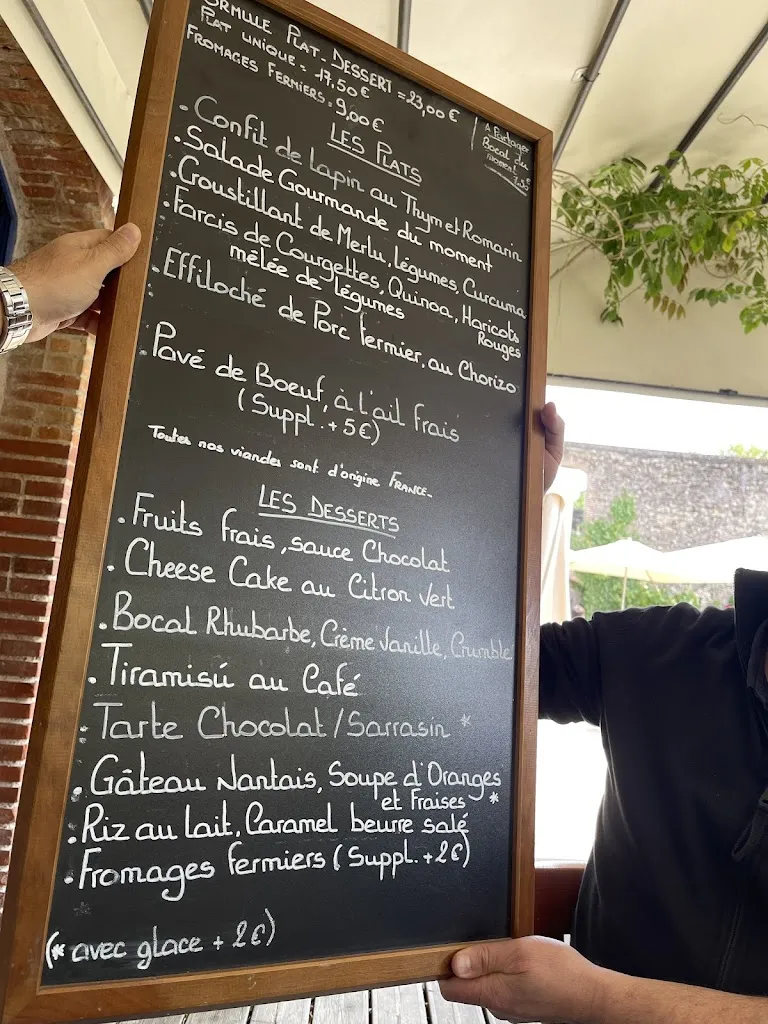 FORMULE PLAT - DESSERT = 23,00 €
PLAT UNIQUE = 17,50 €
FROMAGES FERMIERS = 9,00 €
A Partager
Bocal du
moment
7,50 €
LES PLATS
. Confit de Lapin au Thym et Romarin
. Salade Gourmande du moment
. Croustillant de Merlu, légumes, Curcuma
. Farcis de Courgettes, Quinoa, Haricots
Rouges
mêlée de légumes
. Effiloché de Porc fermier, au Chorizo
. Pavé de Boeuf, à l'ail frais
(Suppl. + 5 €)
Toutes nos viandes sont d'origine FRANCE.
LES DESSERTS
. Fruits frais, sauce Chocolat
. Cheese Cake au Citron Vert
. Bocal Rhubarbe, Crème Vanille, Crumble
. Tiramisú au Café
. Tarte Chocolat / Sarrasin *
. Gâteau Nantais, Soupe d'Oranges
et Fraises *
. Riz au lait, Caramel beurre salé
. Fromages fermiers (Suppl. + 2 €)
(* avec glace + 2 €)